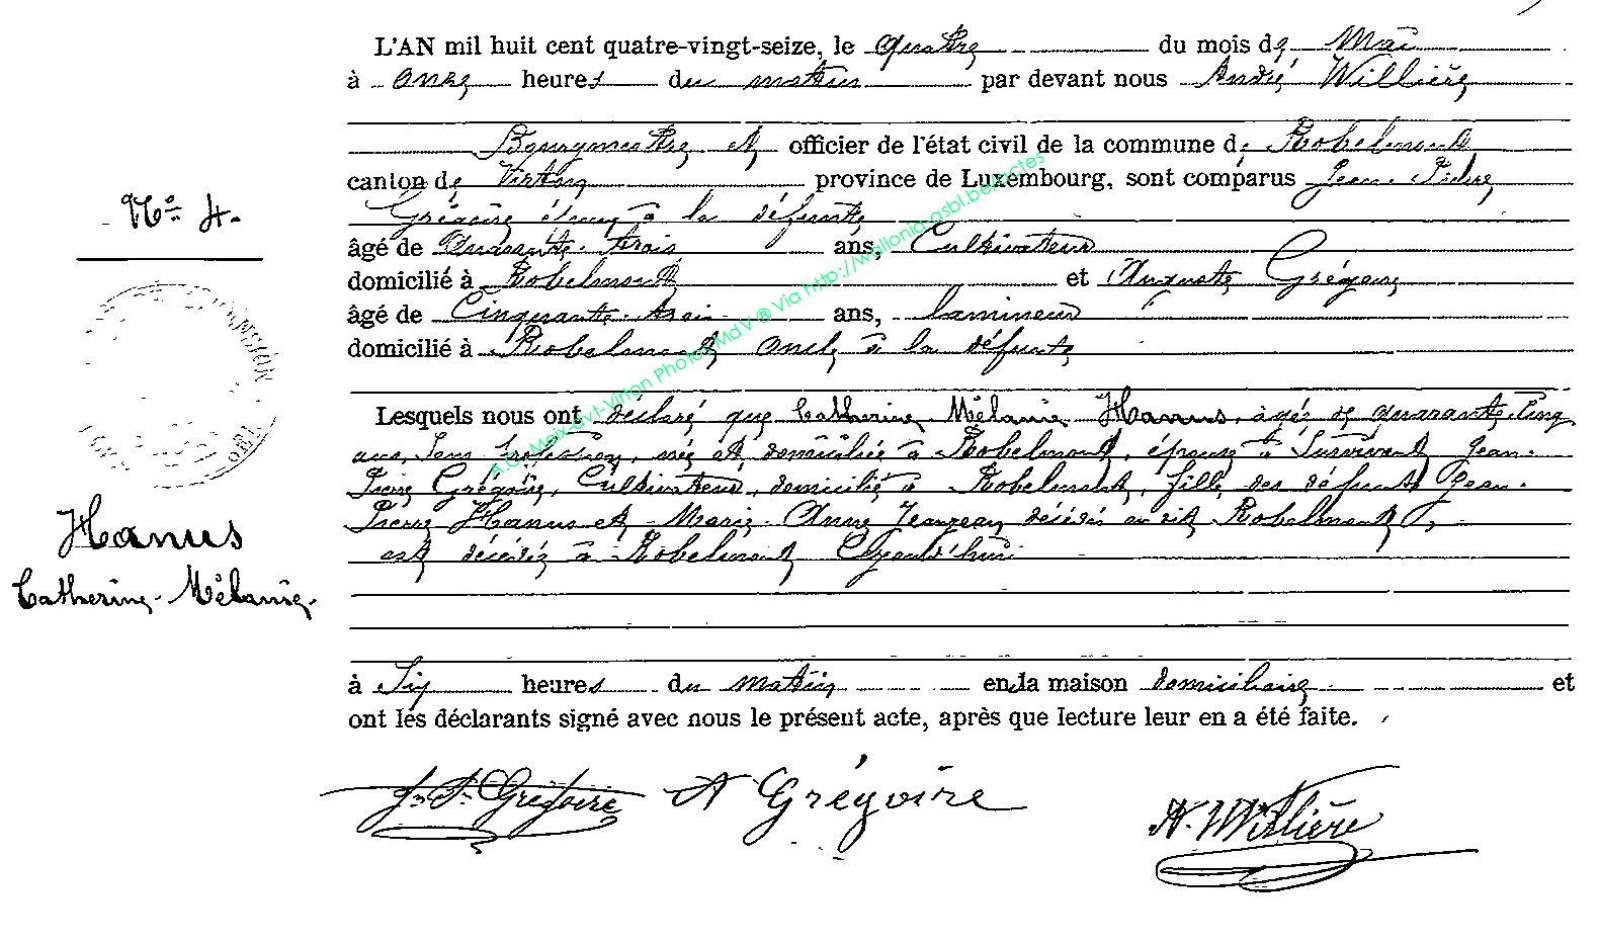 L'AN mil huit cent quatre-vingt-seize, le quatre du mois de Mai
à onze heures du matin par devant nous André Willière
Bourgmestre et officier de l'état civil de la commune de Robelmont
canton de Virton province de Luxembourg, sont comparus Jean-Pierre
Grégoire époux à la défunte
âgé de Quarante-trois ans, Cultivateur
domicilié à Robelmont et Auguste Grégoire
âgé de Cinquante-trois ans, lamineur
domicilié à Robelmont oncle à la défunte
Lesquels nous ont déclaré que Catherine-Mélanie Hanus, âgée de quarante-cinq
ans, sans profession, née et domiciliée à Robelmont, épouse à survivant Jean-
Pierre Grégoire, Cultivateur, domicilié à Robelmont, fille des défunts Jean-
Pierre Hanus et Marie-Anne Jeanjean décédés au dit Robelmont,
est décédée à Robelmont Cejourd'hui
à Six heures du matin en la maison domiciliaire et
ont les déclarants signé avec nous le présent acte, après que lecture leur en a été faite.
J. P. Grégoire A Grégoire A. Willière
N° 4.
Hanus
Catherine-Mélanie.
A.C. Meix-dvt-Virton Photos MdV ® Via http://wallonia-asbl.be/actes